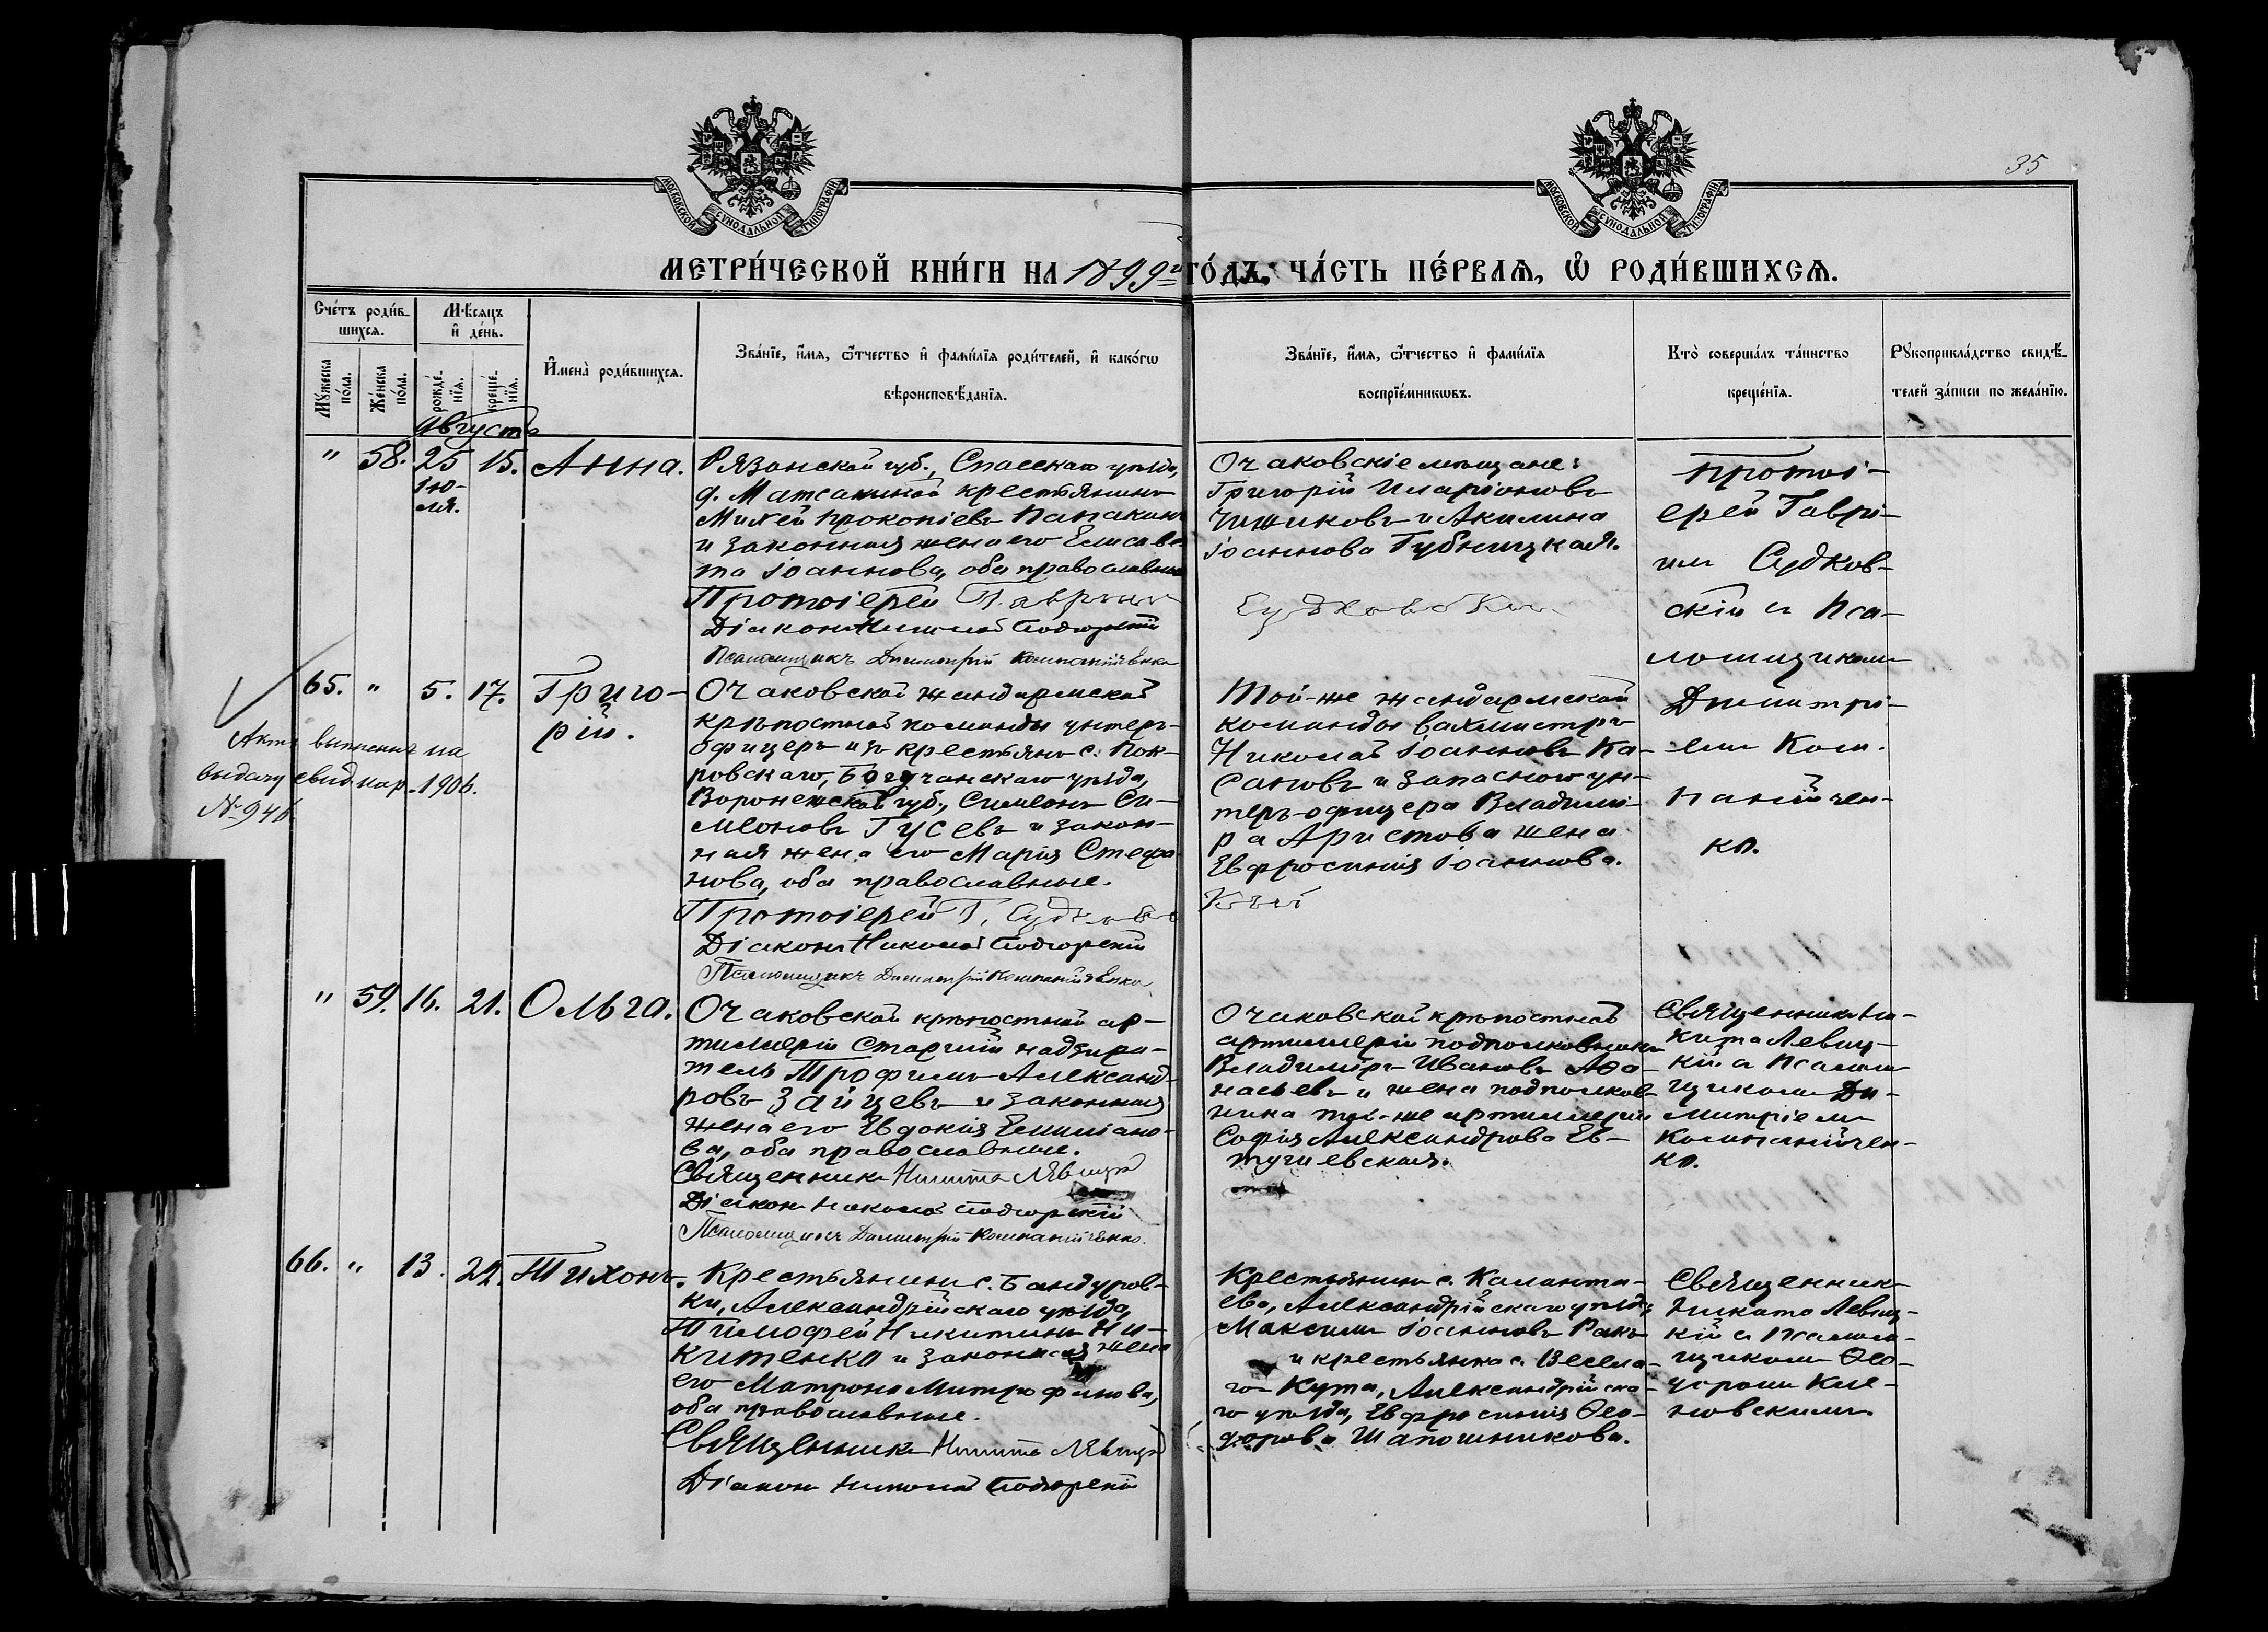 35
МОСКОВСКОЙ СѴНОДАЛЬНОЙ ТИПОГРАФІИ
МОСКОВСКОЙ СѴНОДАЛЬНОЙ ТИПОГРАФІИ
МЕТРИ́ЧЕСКОЙ КНИ́ГИ НА 1899й ГО́ДЪ, ЧА́СТЬ ПЕ́РВАѦ, Ѡ҆ РОДИ́ВШИХСѦ.
Сче́тъ роди́в-
шихся.
Мꙋ́жеска по́ла.
Же́нска по́ла.
Мѣ́сяцъ
и҆ де́нь.
рожде́-
нїя.
креще́-
нїя.
И҆мена̀ роди́вшихся.
Зва́нїе, и҆́мя, ѻ҆́тчество и҆ фами́лїя роди́телей, и҆ како́гѡ
вѣроисповѣ́данїя.
Зва́нїе, и҆́мя, ѻ҆́тчество и҆ фами́лїя
воспрїе́мникѡвъ.
Кто̀ соверша́лъ та́инство
креще́нїя.
Рꙋкоприкла́дство свидѣ́-
телей за́писи по жела́нїю.
Августъ
" 58. 25 15. Анна.
Ію-
ля.
Рязанской губ., Спасскаго уѣзда,
д. Матсакиной крестьянинъ
Михей Прокопіевъ Папакинъ
и законная жена его Елисаве-
та Іоаннова, оба православные
Протоіерей Гавріилъ
Діаконъ Николай Подгорскій
Псаломщикъ Димитрій Компанійченко
Очаковскіе мѣщане:
Григорій Иларіоновъ
Чижиковъ и Акилина
Іоаннова Губницкая.
Судковскій
Протоі-
ерей Гаврі-
илъ Судков-
скій и Пса-
ломщикомъ
Димитрі-
емъ Ком-
панійчен-
ко.
65. " 5. 17. Григо-
рій.
Актъ выписанъ на
выдачу свид. мар. 1906.
№ 946
Очаковской жандармской
крѣпостной команды унтеръ-
офицеръ изъ крестьянъ с. Пок-
ровскаго, Богучанскаго уѣзда,
Воронежской губ., Симеонъ Си-
меоновъ Гусевъ и закон-
ная жена его Марія Стефа-
нова, оба православные.
Протоіерей Г. Судковс
Діаконъ Николай Подгорскій
Псаломщикъ Димитрій Компанійченко
Той-же жандармской
команды вахмистръ
Николай Іоанновъ Ка-
саповъ и запаснаго ун-
теръ-офицера Владимі-
ра Аристова жена
Евфросинія Іоаннова.
кій
" 59. 16. 21. Ольга.
Очаковской крѣпостной ар-
тиллеріи старшій надзира-
тель Трофимъ Александ-
ровъ Зайцевъ и законная
жена его Евдокія Емиліано-
ва, оба православные.
Священникъ Никита Левицк
Діаконъ Николай Подгорскій
Псаломщикъ Димитрій Компанійченко.
Очаковской крѣпостной
артиллеріи подполковникъ
Владиміръ Ивановъ Аѳа-
насьевъ и жена подполков-
ника той-же артиллеріи
Софія Александрова Ев-
тушевская.
Священникъ Ни-
кита Левиц-
кій и Псалом-
щикомъ Ди-
митріемъ
Компанійчен-
ко.
66. " 13. 22. Тихонъ.
Крестьянинъ с. Бандуров-
ки, Александрійскаго уѣзда,
Тимофей Никитинъ Ни-
китенко и законная жена
его Матрона Митрофанова,
оба православные.
Священникъ Никита Левицк
Діаконъ Николай Подгорскій
Крестьянинъ с. Каланта-
ева, Александрійскаго уѣзда,
Максимъ Іоанновъ Ракъ
и крестьянка с. Весела-
го Кута, Александрійска-
го уѣзда, Евфросинія Ѳео-
дорова Шапошникова.
Священникъ
Никита Левиц-
кій и Псалом-
щикомъ Ѳео-